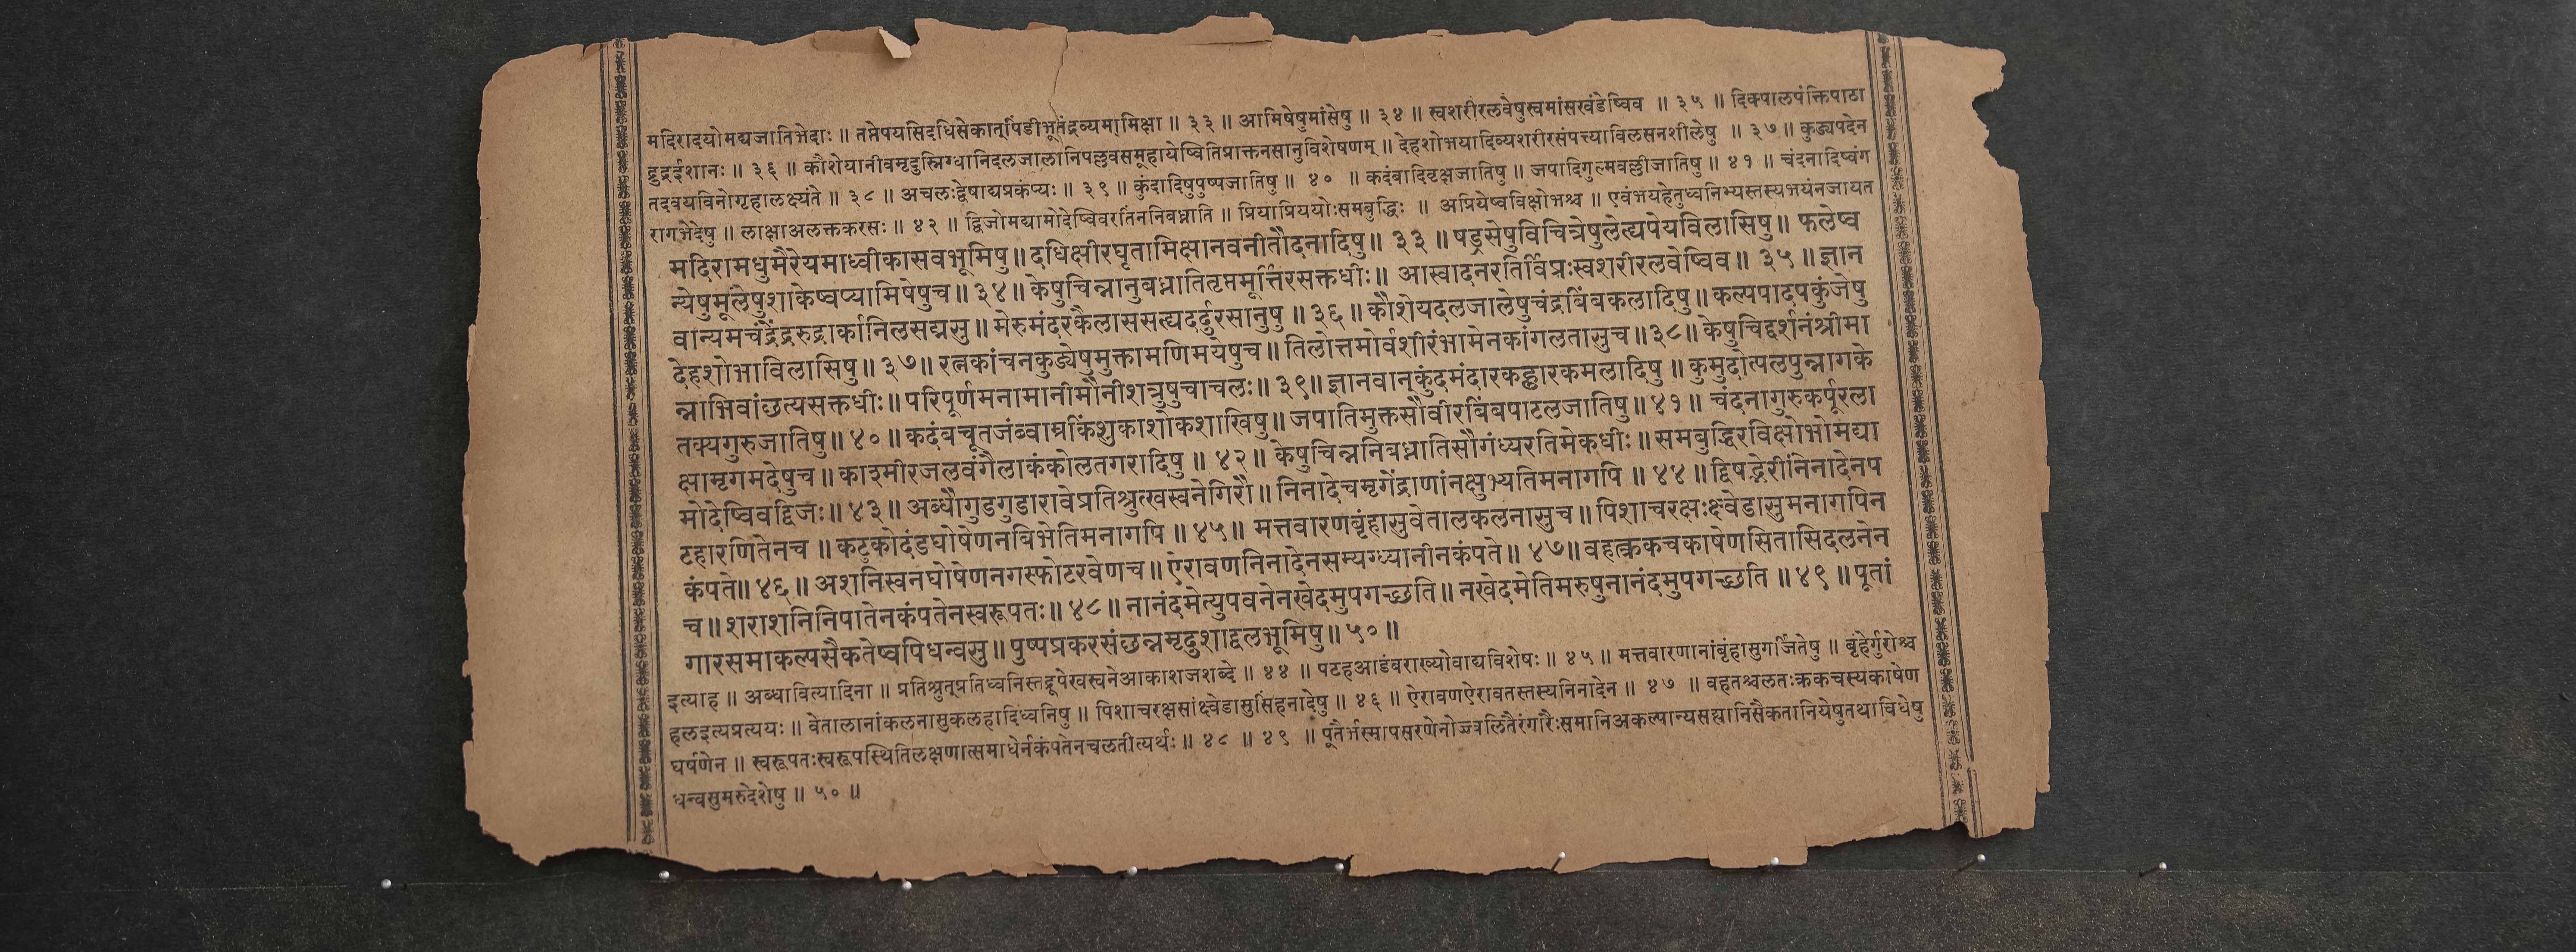 मदिरादयोमद्यजातिभेदाः ॥ तप्तेपयसिदधिसेकात्पिंडीभूतंद्रव्यमामिक्षा ॥ ३३ ॥ आमिषेषुमांसेषु ॥ ३४ ॥ स्वशरीरलवेषुस्वमांसखंडेष्विव ॥ ३५ ॥ दिक्पालपंक्तिपाठा
द्रुद्रईशानः ॥ ३६ ॥ कौशेयानीवमृदुस्निग्धानिदलजालानिपल्लवसमूहायेष्वितिप्राक्तनसानुविशेषणम् ॥ देहशोभयादिव्यशरीरसंपत्त्याविलसनशीलेषु ॥ ३७ ॥ कुड्यपदेन
तदवयविनोगृहालक्ष्यंते ॥ ३८ ॥ अचलःद्वेषाद्यप्रकंप्यः ॥ ३९ ॥ कुंदादिषुपुष्पजातिषु ॥ ४० ॥ कदंबादिवृक्षजातिषु ॥ जपादिगुल्मवल्लीजातिषु ॥ ४१ ॥ चंदनादिष्वंग
रागभेदेषु ॥ लाक्षाअलक्तकरसः ॥ ४२ ॥ द्विजोमद्यामोदेष्विवरतिंननिबध्नाति ॥ प्रियाप्रिययोःसमबुद्धिः ॥ अप्रियेष्वविक्षोभश्च ॥ एवंभयहेतुध्वनिभ्यस्तस्यभयंनजायत
मदिरामधुमैरेयमाध्वीकासवभूमिषु ॥ दधिक्षीरघृतामिक्षानवनीतौदनादिषु ॥ ३३ ॥ षड्रसेषुविचित्रेषुलेह्यपेयविलासिषु ॥ फलेष्व
न्येषुमूलेषुशाकेष्वप्यामिषेषुच ॥ ३४ ॥ केषुचिन्नानुबध्नातितृप्तमूर्त्तिरसक्तधीः ॥ आस्वादनरतिर्विप्रःस्वशरीरलवेष्विव ॥ ३५ ॥ ज्ञान
वान्यमचंद्रेंद्ररुद्रार्कानिलसद्मसु ॥ मेरुमंदरकैलाससह्यदर्दुरसानुषु ॥ ३६ ॥ कौशेयदलजालेषुचंद्रबिंबकलादिषु ॥ कल्पपादपकुंजेषु
देहशोभाविलासिषु ॥ ३७ ॥ रत्नकांचनकुड्येषुमुक्तामणिमयेषुच ॥ तिलोत्तमोर्वशीरंभामेनकांगलतासुच ॥ ३८ ॥ केषुचिद्दर्शनंश्रीमा
न्नाभिवांछत्यसक्तधीः ॥ परिपूर्णमनामानीमौनीशत्रुषुचाचलः ॥ ३९ ॥ ज्ञानवान्कुंदमंदारकह्लारकमलादिषु ॥ कुमुदोत्पलपुन्नागके
तक्यगुरुजातिषु ॥ ४० ॥ कदंबचूतजंब्वाम्रकिंशुकाशोकशाखिषु ॥ जपातिमुक्तसौवीरबिंबपाटलजातिषु ॥ ४१ ॥ चंदनागुरुकर्पूरला
क्षामृगमदेषुच ॥ काश्मीरजलवंगैलाकंकोलतगरादिषु ॥ ४२ ॥ केषुचिन्ननिबध्नातिसौगंध्यरतिमेकधीः ॥ समबुद्धिरविक्षोभोमद्या
मोदेष्विवद्विजः ॥ ४३ ॥ अब्धौगुडगुडारावेप्रतिश्रुत्खस्वनेगिरौ ॥ निनादेचमृगेंद्राणांनक्षुभ्यतिमनागपि ॥ ४४ ॥ द्विषद्भेरीनिनादेनप
टहारणितेनच ॥ कटुकोदंडघोषेणनबिभेतिमनागपि ॥ ४५ ॥ मत्तवारणबृंहासुवेतालकलनासुच ॥ पिशाचरक्षःक्ष्वेडासुमनागपिन
कंपते ॥ ४६ ॥ अशनिस्वनघोषेणनगस्फोटरवेणच ॥ ऐरावणनिनादेनसम्यग्ध्यानीनकंपते ॥ ४७ ॥ वहत्क्रकचकाषेणसितासिदलनेन
च ॥ शराशनिनिपातेनकंपतेनस्वरूपतः ॥ ४८ ॥ नानंदमेत्युपवनेनखेदमुपगच्छति ॥ नखेदमेतिमरुषुनानंदमुपगच्छति ॥ ४९ ॥ पूतां
गारसमाकल्पसैकतेष्वपिधन्वसु ॥ पुष्पप्रकरसंछन्नमृदुशाद्वलभूमिषु ॥ ५० ॥
इत्याह ॥ अब्धावित्यादिना ॥ प्रतिश्रुत्प्रतिध्वनिस्तद्रूपेखस्वनेआकाशजशब्दे ॥ ४४ ॥ पटहआडंबराख्योवाद्यविशेषः ॥ ४५ ॥ मत्तवारणानांबृंहासुगर्जितेषु ॥ बृंहेर्गुरोश्च
हलइत्यप्रत्ययः ॥ वेतालानांकलनासुकलहादिध्वनिषु ॥ पिशाचरक्षसांक्ष्वेडासुसिंहनादेषु ॥ ४६ ॥ ऐरावणऐरावतस्तस्यनिनादेन ॥ ४७ ॥ वहतश्चलतःक्रकचस्यकाषेण
घर्षणेन ॥ स्वरूपतःस्वरूपस्थितिलक्षणात्समाधेर्नकंपतेनचलतीत्यर्थः ॥ ४८ ॥ ४९ ॥ पूतैर्भस्मापसरणेनोज्ज्वलितैरंगारैःसमानिअकल्पान्यसह्यानिसैकतानियेषुतथाविधेषु
धन्वसुमरुदेशेषु ॥ ५० ॥